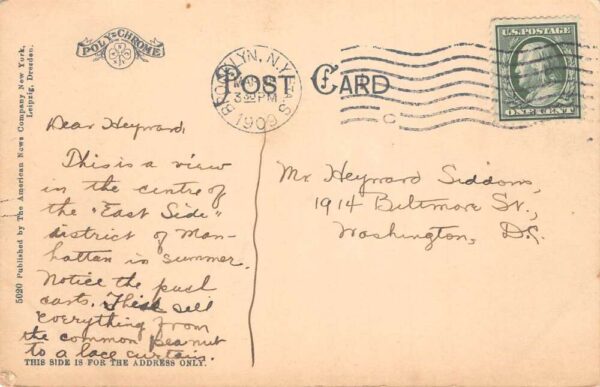 POLY-CHROME
5020 Published by The American News Company New York,
Leipzig, Dresden.
BROOKLYN, N.Y.
MAR
3 30 PM
1909
POST CARD
U.S. POSTAGE
ONE CENT
Dear Heyward,
This is a view
in the centre of
the "East Side"
district of Man-
hattan in summer.
Notice the push
carts. These sell
everything from
the common peanut
to a lace curtain.
THIS SIDE IS FOR THE ADDRESS ONLY.
Mr Heyward Siddons,
1914 Biltmore St.,
Washington, D.C.